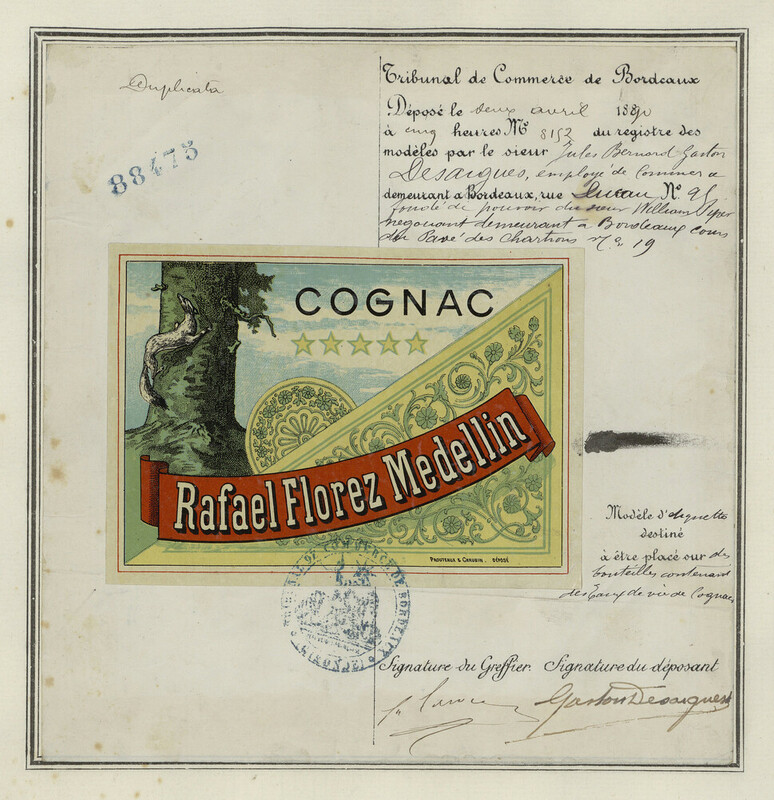 Duplicata
88475
Tribunal de Commerce de Bordeaux
Déposé le deux avril 1890
à cinq heures No 8152 du registre des
modèles par le sieur Jules Bernard Gaston
Desaigues, employé de commerce
demeurant à Bordeaux, rue No 95
fondé de pouvoir du sieur William
négociant demeurant à Bordeaux cours
du Pavé des Chartrons No 19
COGNAC
Rafael Florez Medellin
PROUTEAUX & CHAUVIN. DÉPOSÉ
Modèle d'étiquette
destiné
à être placé sur des
bouteilles contenant
des Eaux de vie de Cognac
TRIBUNAL DE COMMERCE DE BORDEAUX
(GIRONDE)
Signature du Greffier. Signature du déposant
Gaston Desaigues